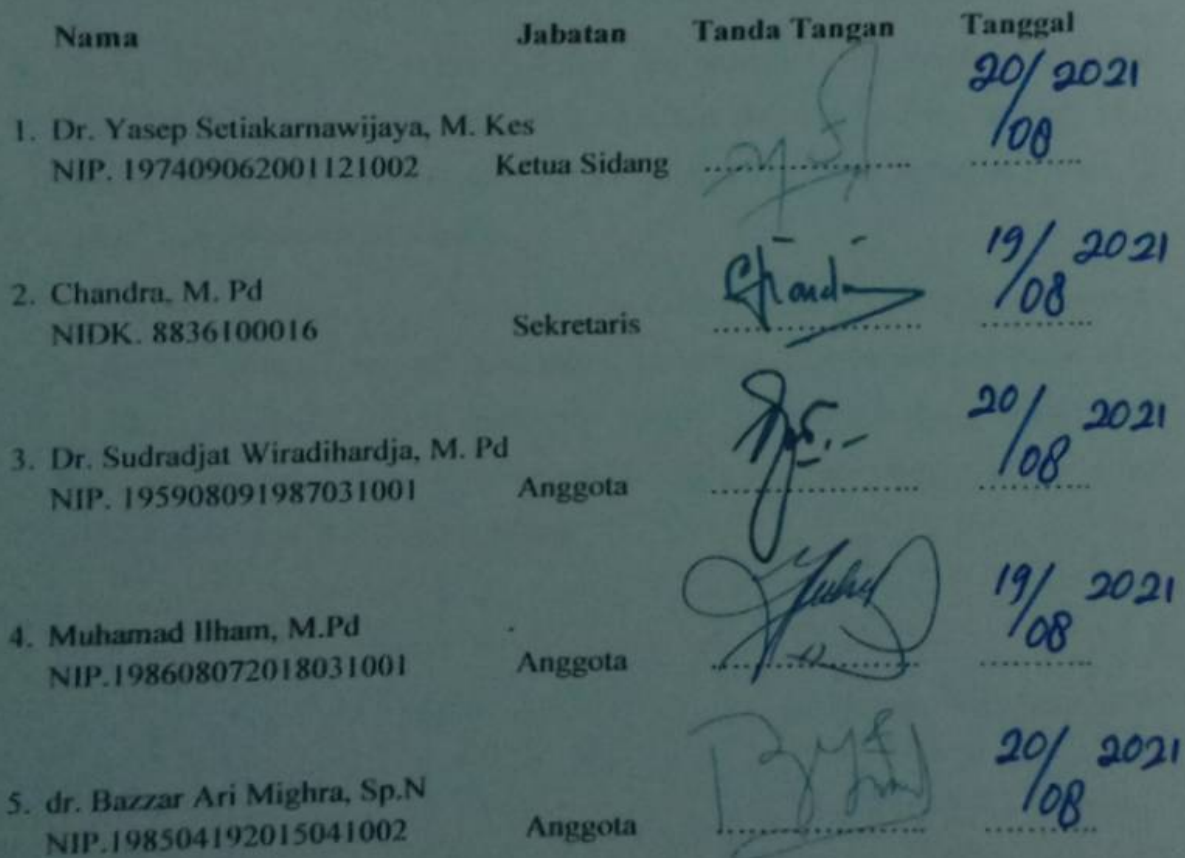 Nama Jabatan Tanda Tangan Tanggal
20/08 2021
1. Dr. Yasep Setiakarnawijaya, M. Kes
NIP. 197409062001121002 Ketua Sidang ....................
19/08 2021
2. Chandra, M. Pd
NIDK. 8836100016 Sekretaris ....................
20/08 2021
3. Dr. Sudradjat Wiradihardja, M. Pd
NIP. 195908091987031001 Anggota ....................
19/08 2021
4. Muhamad Ilham, M.Pd
NIP.198608072018031001 Anggota ....................
20/08 2021
5. dr. Bazzar Ari Mighra, Sp.N
NIP.198504192015041002 Anggota ....................